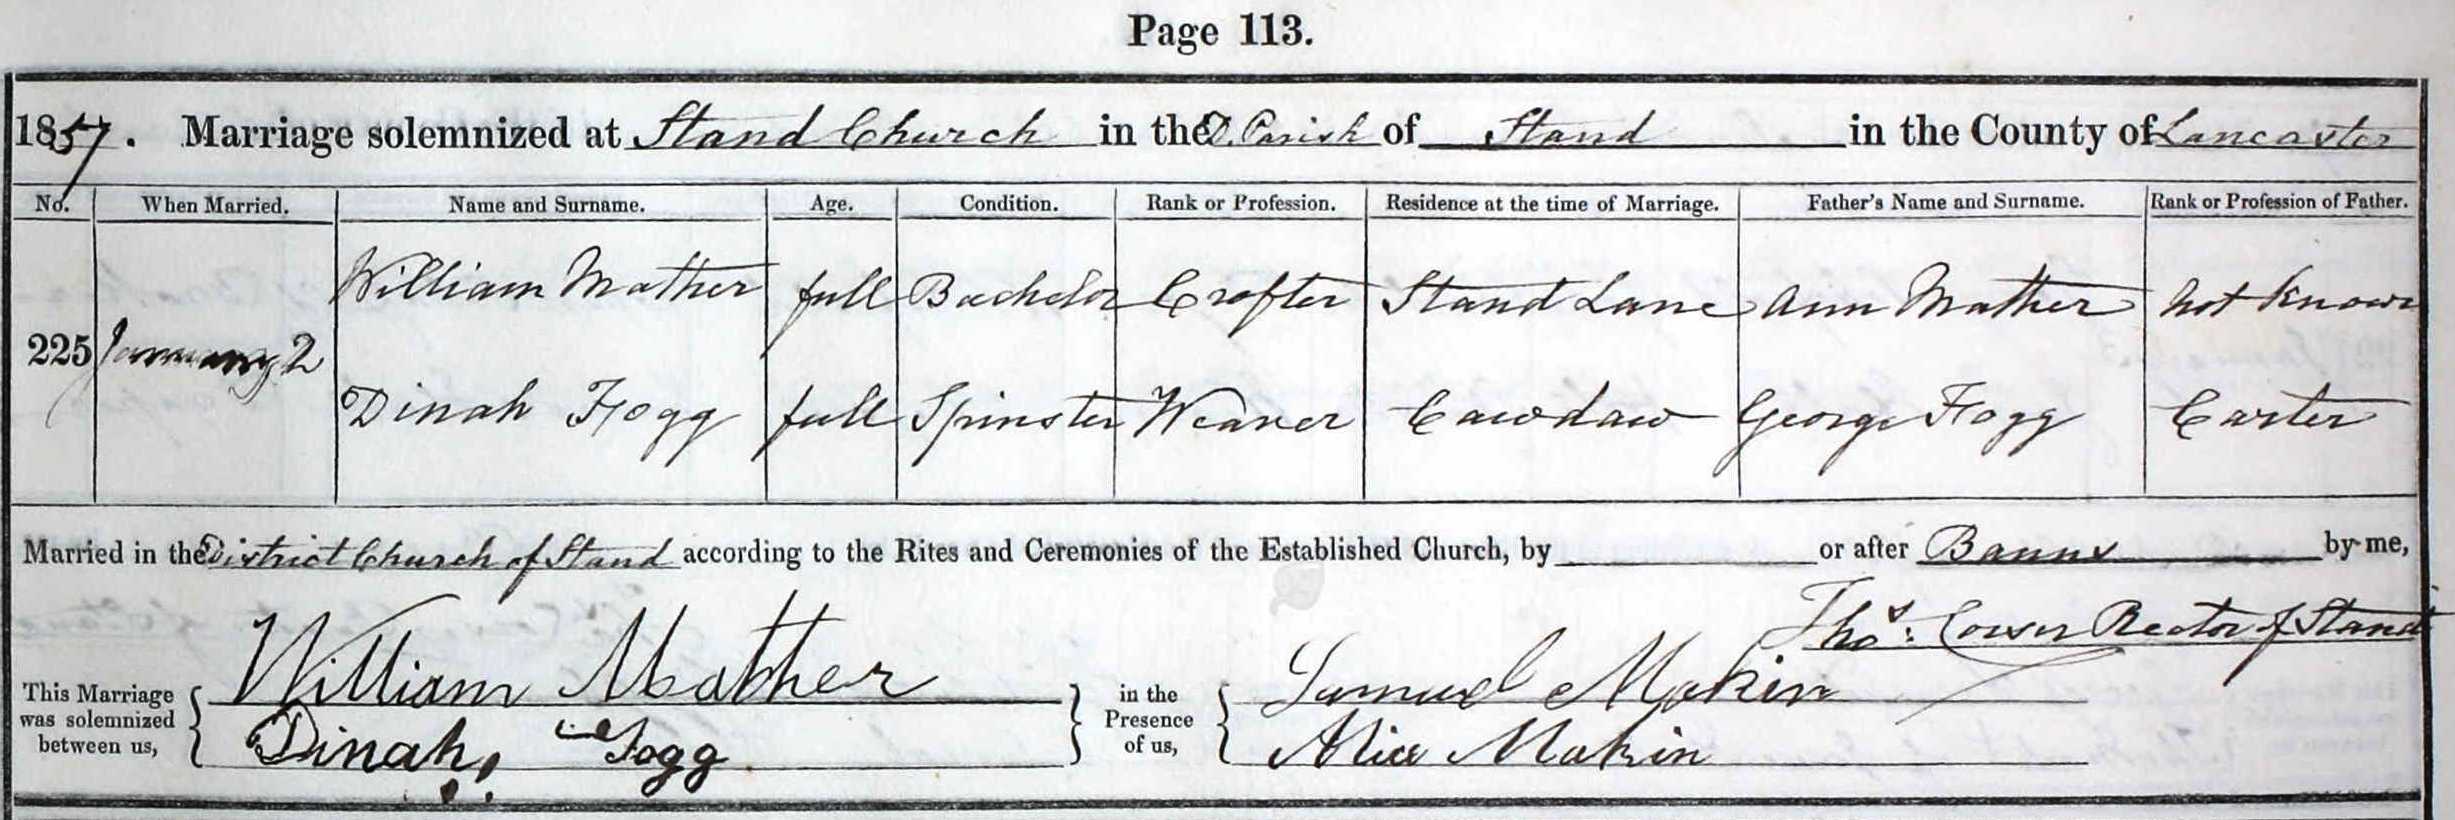 Page 113.
1857. Marriage solemnized at Stand Church in the D. Parish of Stand in the County of Lancaster
No. When Married. Name and Surname. Age. Condition. Rank or Profession. Residence at the time of Marriage. Father's Name and Surname. Rank or Profession of Father.
William Mather full Bachelor Crofter Stand Lane Ann Mather not known
225 January 2
Dinah Fogg full Spinster Weaver Cawdaw George Fogg Carter
Married in the District Church of Stand according to the Rites and Ceremonies of the Established Church, by or after Banns by me,
Thos: Rector of Stand
This Marriage was solemnized between us, William Mather in the Presence of us, Samuel Makin
Dinah Fogg Alice Makin